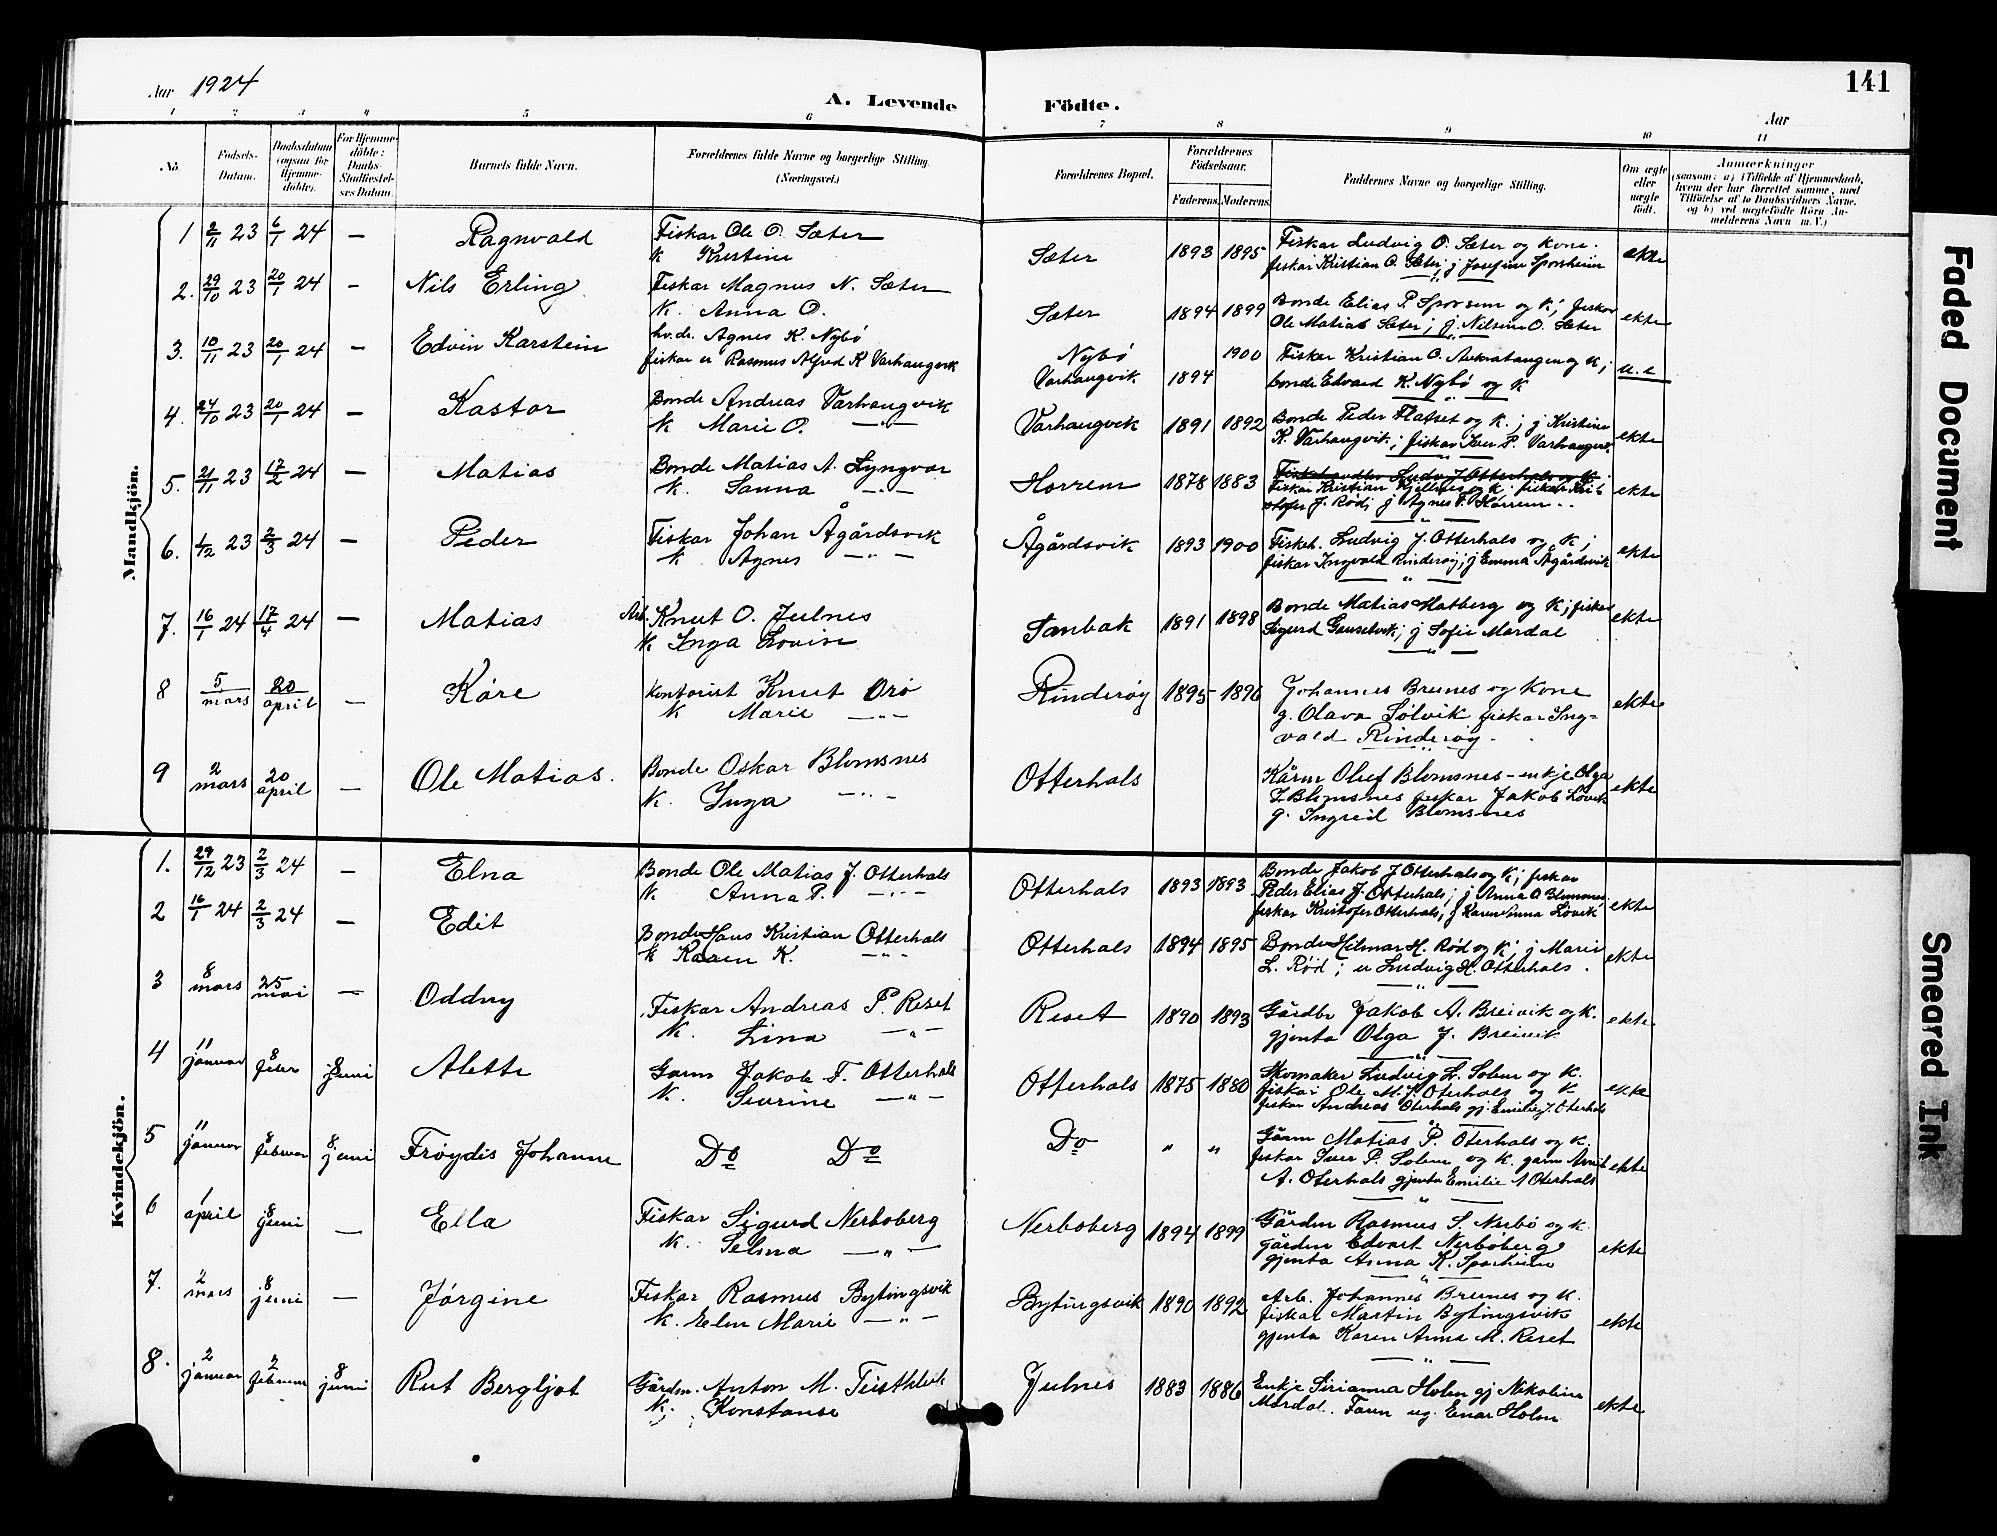 Aar 1924
A. Levende Födte.
Aar
141
1 2 3 4 5 6 7 8 9 10 11
No.
Fødsels-Datum.
Daabsdatum (ogsaa for Hjemmedøbte).
For Hjemmedøbte: Daabs-Stadfæstelses Datum.
Barnets fulde Navn.
Forældrenes fulde Navne og borgerlige Stilling. (Næringsvei.)
Forældrenes Bopæl.
Forældrenes Fødselsaar.
Faderens. Moderens.
Faddernes Navne og borgerlige Stilling.
Om ægte eller uægte født.
Anmærkninger
(saasom: a) i Tilfælde af Hjemmedaab, hvem der har forrettet samme, med Tilføielse af to Daabsvidners Navne, og b) ved uægtefødte Børn Anmelderens Navn m. V.)
Mandkjön.
1 2/11 23 6/1 24 — Ragnvald Fiskar Ole O. Sæter Sæter 1893 1895 Fiskar Ludvig O. Sæter og kone. ekte
K Kristine fiskar Kristian O. Sæter; j Josefine Sporsheim
2. 29/10 23 20/1 24 - Nils Erling Fiskar Magnus N. Sæter Sæter 1894 1899 Bonde Elias P. Sporsem og K; fiskar ekte
K. Anna O. Ole Matias Sæter; j. Nilsine O. Sæter
3. 10/11 23 20/1 24 - Edvin Karstein hv.dr. Agnes K. Nybö Nybö 1900 Fiskar Kristian O. og K; u. e
fiskar u Rasmus Alfred K Varhaugvik Varhaugvik 1894 bonde Edvard K. Nybö og K
4. 24/10 23 20/1 24 - Kastor Bonde Andreas Varhaugvik Varhaugvik 1891 1892 Bonde Peder Flatset og K.; j Kristine ekte
K Marie O. —"— K. Varhaugvik; fiskar Iver P. Varhaugvik
5. 21/11 23 17/2 24 - Matias Bonde Matias A. Lyngvær Horrem 1878 1883 Fiskehandler Ludv. J Otterhals og K; ekte
K. Sanna —"— Fiskar Kristian og K; fiskar Kristofer J. Röd; j Agnes P. Horrem.
6. 1/12 23 2/3 24 - Peder Fiskar Johan Ågårdsvik Ågårdsvik 1893 1900 Fiskeh. Ludvig J. Otterhals og K; ekte
K. Agnes —"— fiskar Ingvald Rinderöy; j Emma Ågårdsvik
7. 16/1 24 17/4 24 — Matias Arb. Knut O. Julnes Sanbak 1891 1898 Bonde Matias Hatberg og K; fisker ekte
K Inga Lovise Sigurd Gausetvik; j Sofie Mordal
8 5 mars 20 april — Kåre kontorist Knut Orö Rinderöy 1895 1896 Johannes Brunes og kone ekte
K Marie —"— g. Olava Sölvik fiskar Ingvald Rinderöy.
9 2 mars 20 april — Ole Matias. Bonde Oskar Blomsnes Otterhals Kårm Oluf Blomsnes - enkje Olga ekte
K. Inga —"— I. Blomsnes fiskar Jakob Lövik
g. Ingreid Blomsnes
Kvindekjön.
1. 29/12 23 2/3 24 - Elna Bonde Ole Matias J. Otterhals Otterhals 1893 1893 Bonde Jakob J Otterhals og K; fiskar ekte
K. Anna P. —"— Peder Elias J. Otterhals; j Anna O Blomsnes
fiskar Kristofer Otterhals; j Karen Anna Lövik
2 16/1 24 2/3 24 - Edit Bonde Hans Kristian Otterhals Otterhals 1894 1895 Bonde Hilmar H. Röd og K; j Marie ekte
K Karen K. —"— L. Röd; u Ludvig H. Otterhals.
3 8 mars 25 mai — Oddny Fiskar Andreas P. Reset Reset 1890 1893 Gårdbr Jakob A. Breivik og K. ekte
K. Lina —"— gjenta Olga J. Breivik
4 11 januar 8 feber 8 juni Alette Garm Jakob T. Otterhals Otterhals 1875 1880 Skomaker Ludvig L. Solem og K. ekte
K. Severine —"— fiskar Ole M. J. Oterhals og K
fiskar Andreas Oterhals gj. Emilie J. Oterhals
5 11 januar 8 februar 8 juni Fröydis Johanne Do Do Do " " Gårm Matias P. Oterhals og K. ekte
fiskar Iver P. Solem og K. garm
A. Oterhals gjenta Emilie A Oterhals
6 1 april 8 juni — Ella Fiskar Sigurd Nerboberg Nerboberg 1894 1899 Gårdm Rasmus S. Nerbö og K. ekte
K. Selma —"— gårdm Edvart Nerböberg
gjenta Anna K. Sporheim
7. 2 mars 8 juni — Jörgine Fiskar Rasmus Bytingsvik Bytingsvik 1890 1892 Arb. Johannes Brunes og K. ekte
K. Elen Marie —"— fiskar Martin Bytingsvik
gjenta Karen Anna M. Reset
8. 2 januar 2 februar 8 juni Rut Bergljot Gårdm. Anton M. Julnes 1883 1886 Enkje Sirianna Holm gj Nikoline ekte
K. Konstanse Mordal. ug. Enar Holm
Faded Document
Smeared Ink